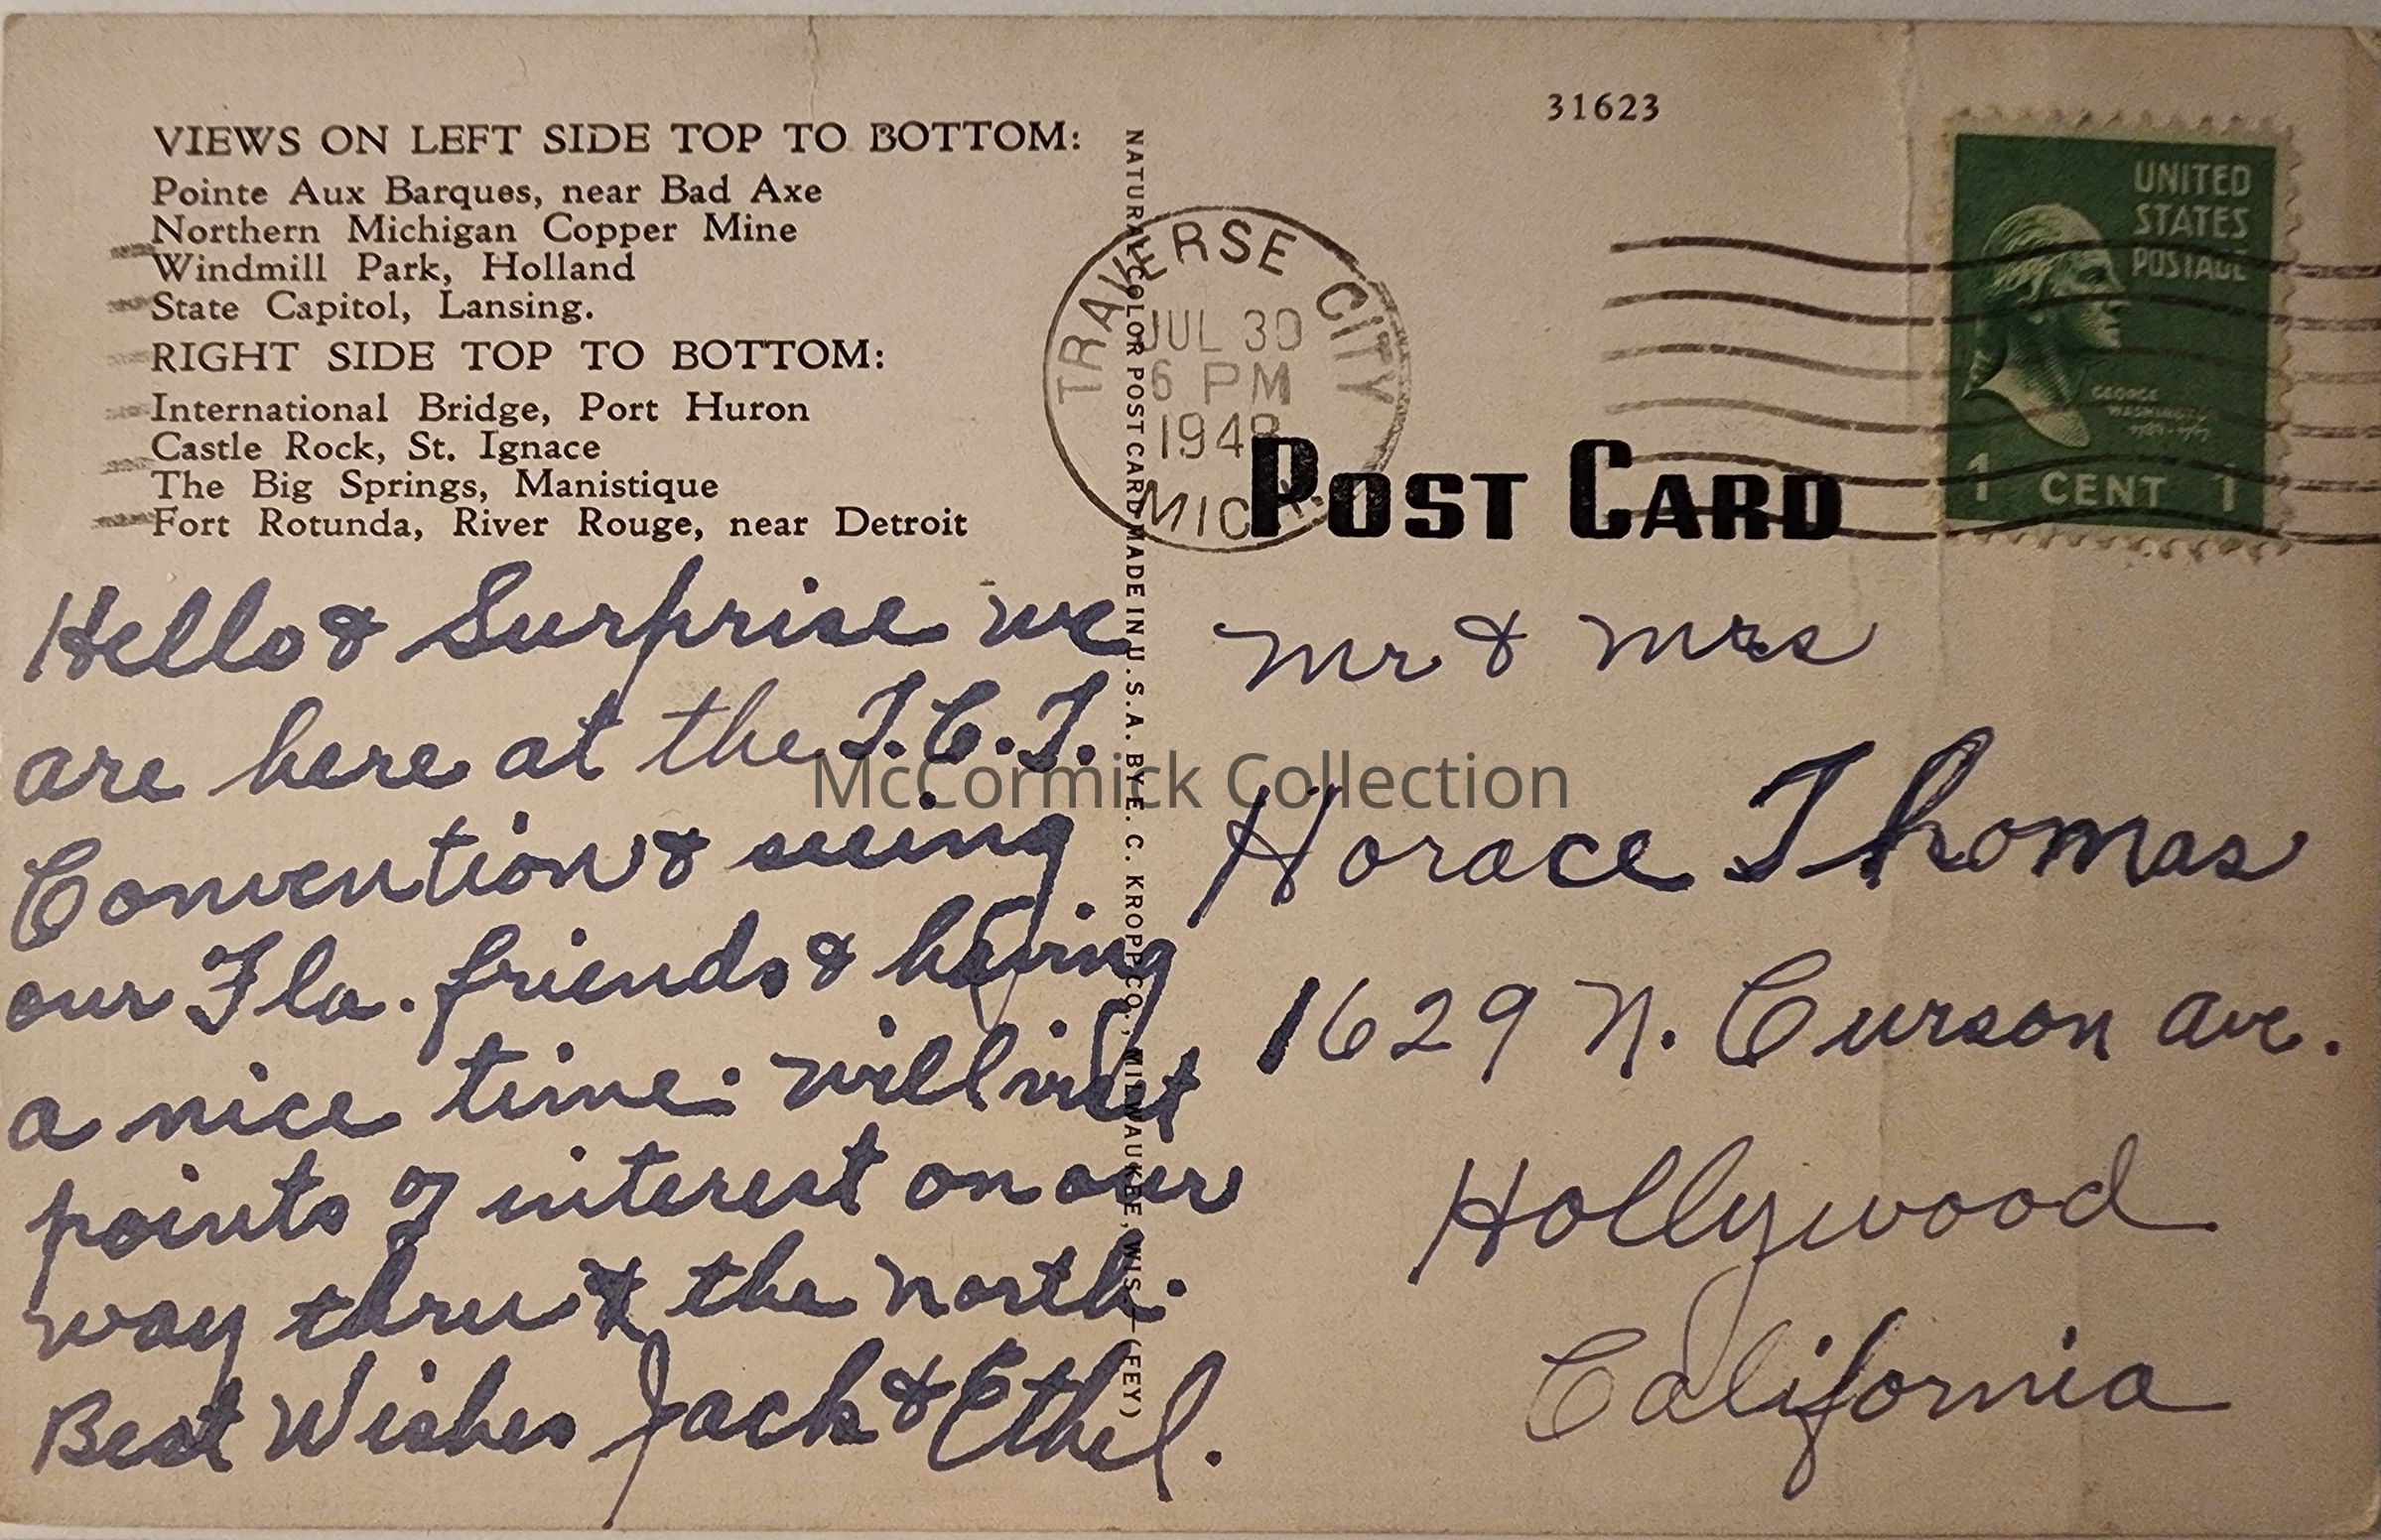 VIEWS ON LEFT SIDE TOP TO BOTTOM:
Pointe Aux Barques, near Bad Axe
Northern Michigan Copper Mine
Windmill Park, Holland
State Capitol, Lansing.
RIGHT SIDE TOP TO BOTTOM:
International Bridge, Port Huron
Castle Rock, St. Ignace
The Big Springs, Manistique
Fort Rotunda, River Rouge, near Detroit
Hello & Surprise we
are here at the T.C.T.
Convention & seeing
our Fla. friends & having
a nice time. will visit
points of interest on our
way thru the north.
Best Wishes Jack & Ethel.
NATURAL COLOR POST CARD MADE IN U.S.A. BY E. C. KROPP CO., MILWAUKEE, WIS.—(FEY)
31623
TRAVERSE CITY
JUL 30
6 PM
1948
MICH.
UNITED
STATES
POSTAGE
GEORGE
WASHINGTON
1789-1797
1 CENT 1
POST CARD
Mr & Mrs
Horace Thomas
1629 N. Curson Ave.
Hollywood
California
McCormick Collection